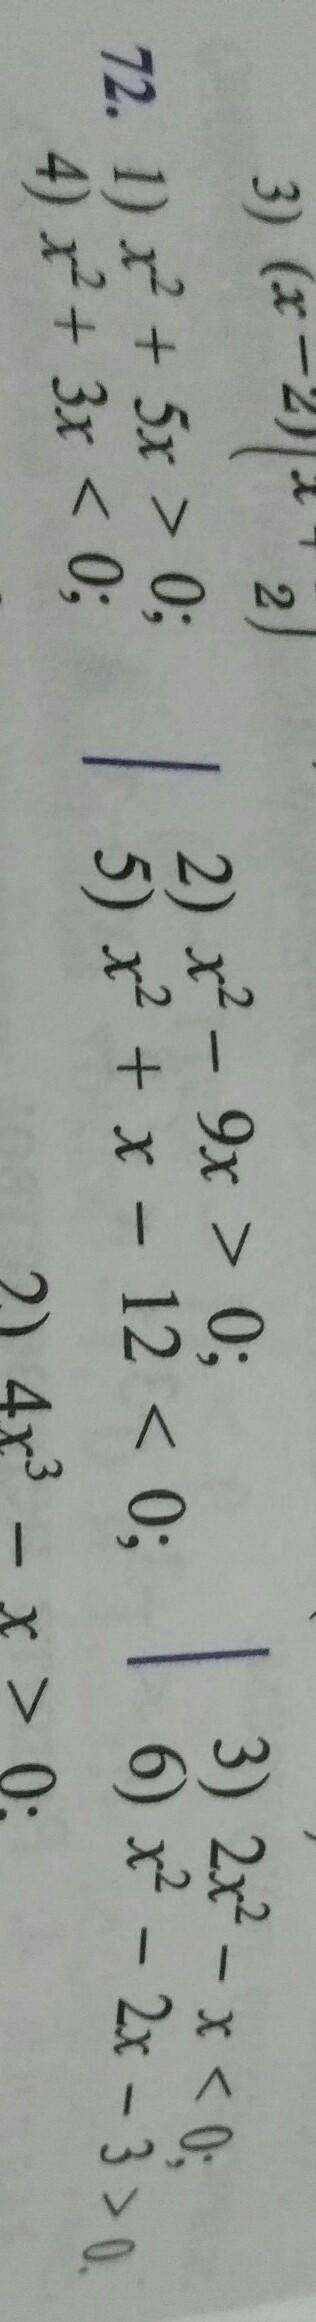 3) (x – 2)(x +
2)
72. 1) x² + 5x > 0; | 2) x² – 9x > 0; | 3) 2x² – x < 0;
4) x² + 3x < 0; 5) x² + x – 12 < 0; 6) x² – 2x – 3 > 0.
2) 4x³ – x > 0;